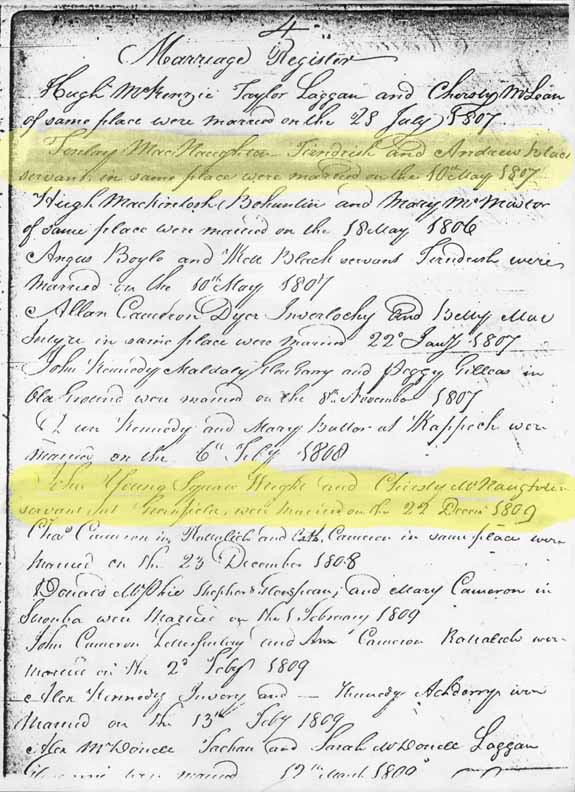 4
Marriage Register
Hugh McKenzie Taylor Laggan and Chirsty McLean
of same place were married on the 28 July 1807
MacNaughton Tirindrish and Andrew Blacs
servant in same place were married on the 10th May 1807
Hugh Mackintosh Bohuntin and Mary McMaster
of same place were married on the 18 May 1806
Angus Boyle and Kett Black servant Tirndrish were
married on the 10th May 1807
Allan Cameron Dyer Inverlochy and Betty Mac
Intyre in same place were married 22d Jany 1807
John Kennedy Glen Garry and Peggy Gillies in
were married on the 8th November 1807
Kennedy and Mary at Kappich were
married on the 6th Feby 1808
John Young Square Wright and Chirsty McNaughton
servant were married on the 22 Decem 1809
Chas Cameron in and Cath. Cameron in same place were
married on the 23 December 1808
Donald McPhie Shepherd and Mary Cameron in
were married on the 1 February 1809
John Cameron Letterfinlay and Ann Cameron were
married on the 2d Feby 1809
Alex Kennedy and — Kennedy Achderry were
married on the 13th Feby 1809
Alex McDonell and Sarah McDonell Laggan
were married 12th March 1800